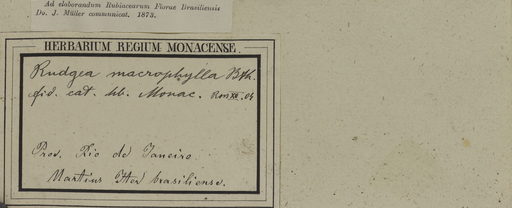 Ad elaborandum Rubiacearum Florae Brasiliensis
Do. J. Müller communicat. 1873.
HERBARIUM REGIUM MONACENSE.
Rudgea macrophylla Bth.
fid. cat. hb. Monac. Rm XII. 04
Prov. Rio de Janeiro.
Martius Iter brasiliense.